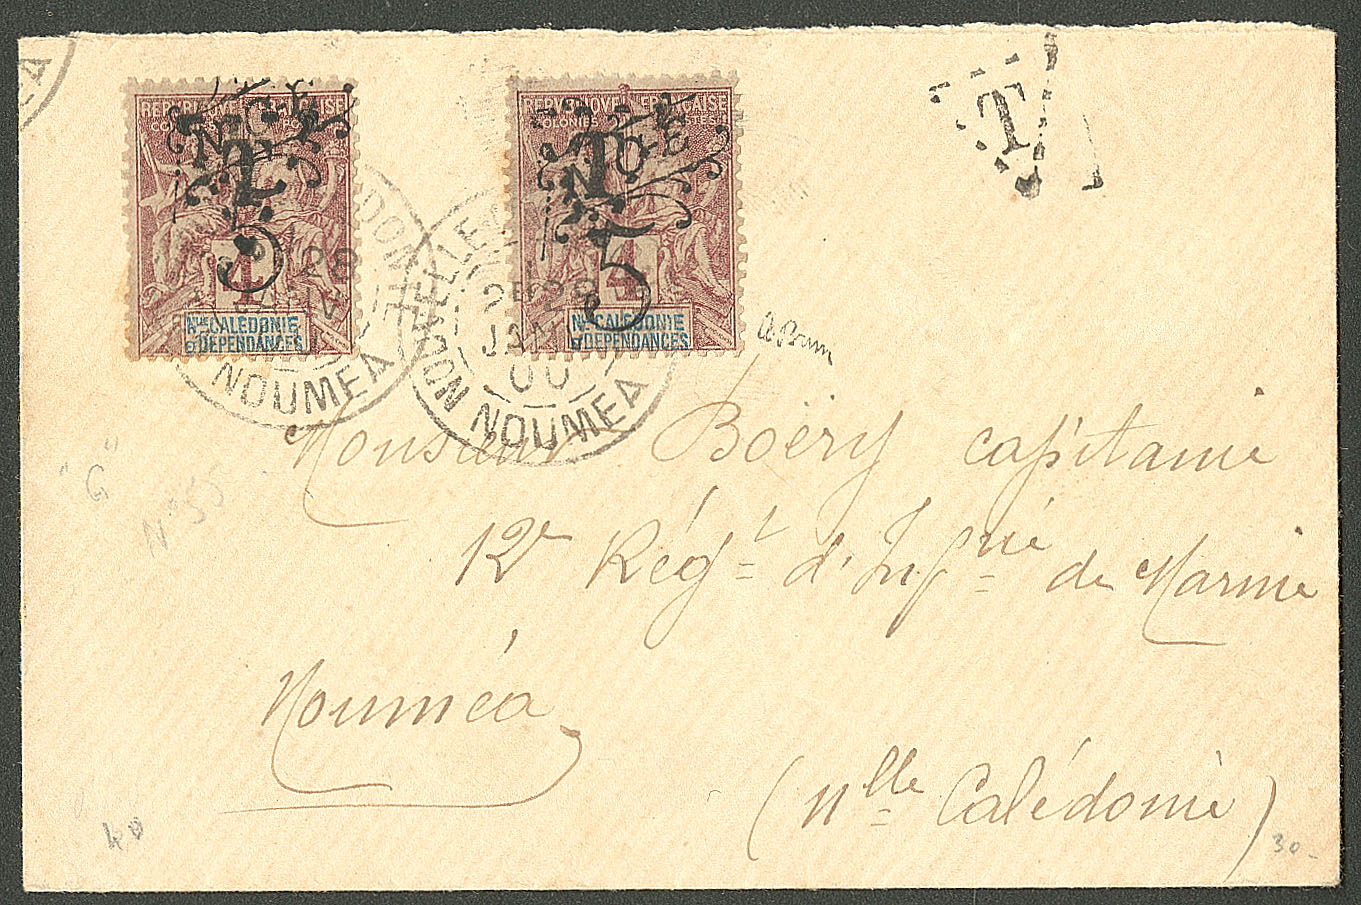 RÉPUBLIQUE FRANÇAISE
N.C.E
T
5
4
Nlle CALÉDONIE
ET DÉPENDANCES
RÉPUBLIQUE FRANÇAISE
COLONIES POSTES
T
N.C.E
5
4
Nlle CALÉDONIE
ET DÉPENDANCES
T
28
NOUMEA
NOUVELLE CALEDONIE
2E 28
JANV
00
NOUMEA
A. Brun
Monsieur Boëry capitaine
12e Régt d'Infrie de Marine
Nouméa
(Nlle Calédonie)
"G"
N°55
40
30-